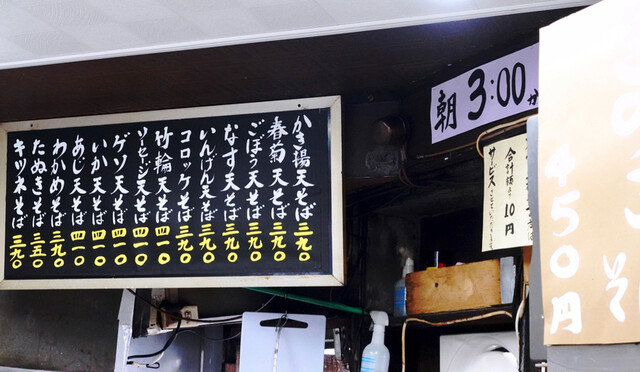 かき揚天そば 三九〇
春菊天そば 三九〇
ごぼう天そば 三九〇
なす天そば 三九〇
いんげん天そば 三九〇
コロッケそば 三九〇
竹輪天そば 四一〇
ソーセージ天そば 四一〇
ゲソ天そば 四一〇
いか天そば 四一〇
あじ天そば 四一〇
わかめそば 三九〇
たぬきそば 三五〇
キツネそば 三九〇
朝3:00か
10円
サービス
そ
450円